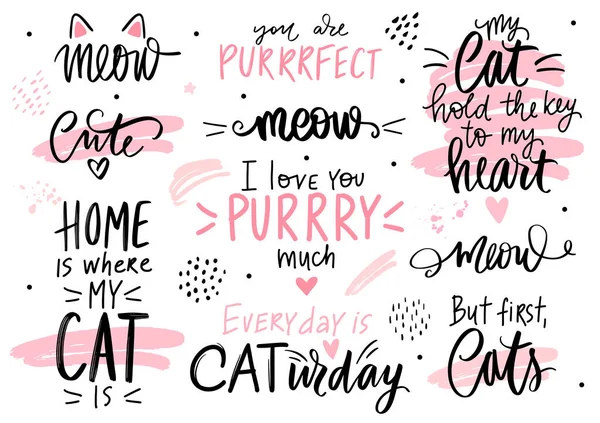 meow
cute
HOME
IS WHERE
MY
CAT
IS
you are
PURRRFECT
meow
I LOVE YOU
PURRRY
much
EVERYDAY IS
CATurday
my
Cat
hold the key
to my
heart
meow
But first,
Cats